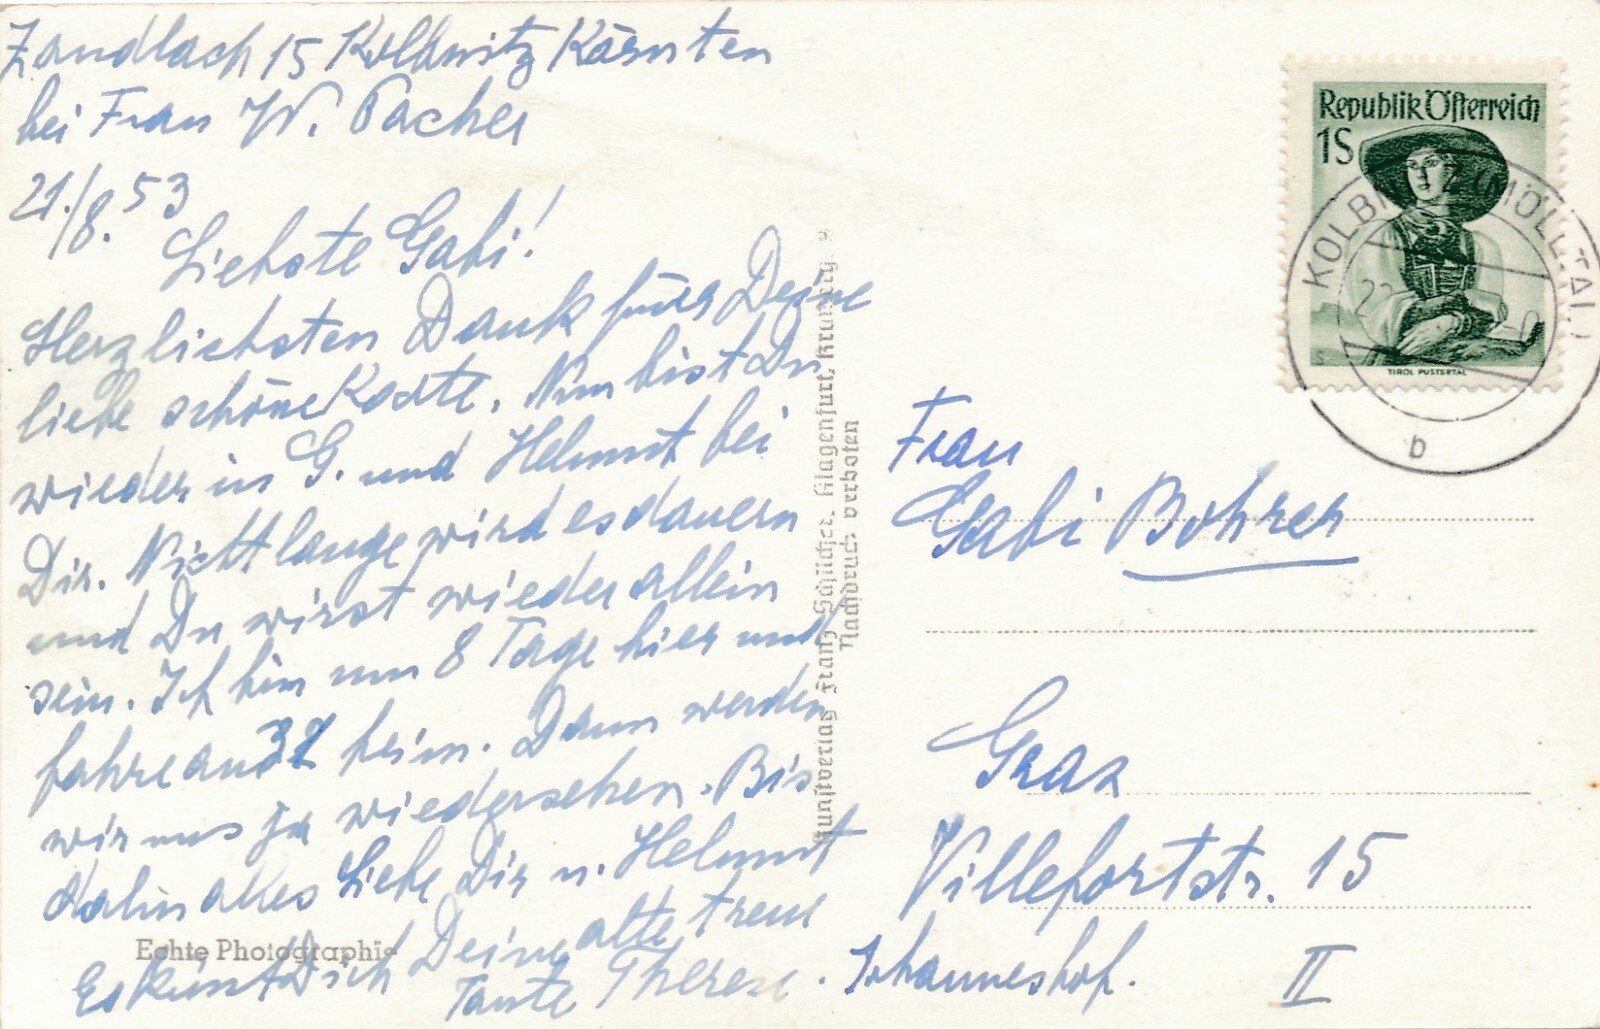 Zandlach 15 Kolbnitz Kärnten
bei Frau W. Pacher
21./8. 53
Liebste Gabi!
Herzlichsten Dank für Deine
liebe schöne Karte. Nun bist Du
wieder in G. und Helmut bei
Dir. Nicht lange wird es dauern
und Du wirst wieder allein
sein. Ich bin nun 8 Tage hier und
fahre am heim. Dann werden
wir uns ja wiedersehen. Bis
dahin alles Liebe Dir u. Helmut
Es küsst Dich Deine alte treue
Tante Therese.
Echte Photographie
Kunstverlag Franz Schilcher, Klagenfurt,
Nachdruck verboten
Republik Österreich
1S
TIROL PUSTERTAL
KOLBNITZ (MÖLLTAL)
b
Frau
Gabi Bohrer
Graz
Villefortstr. 15
Johanneshof. II